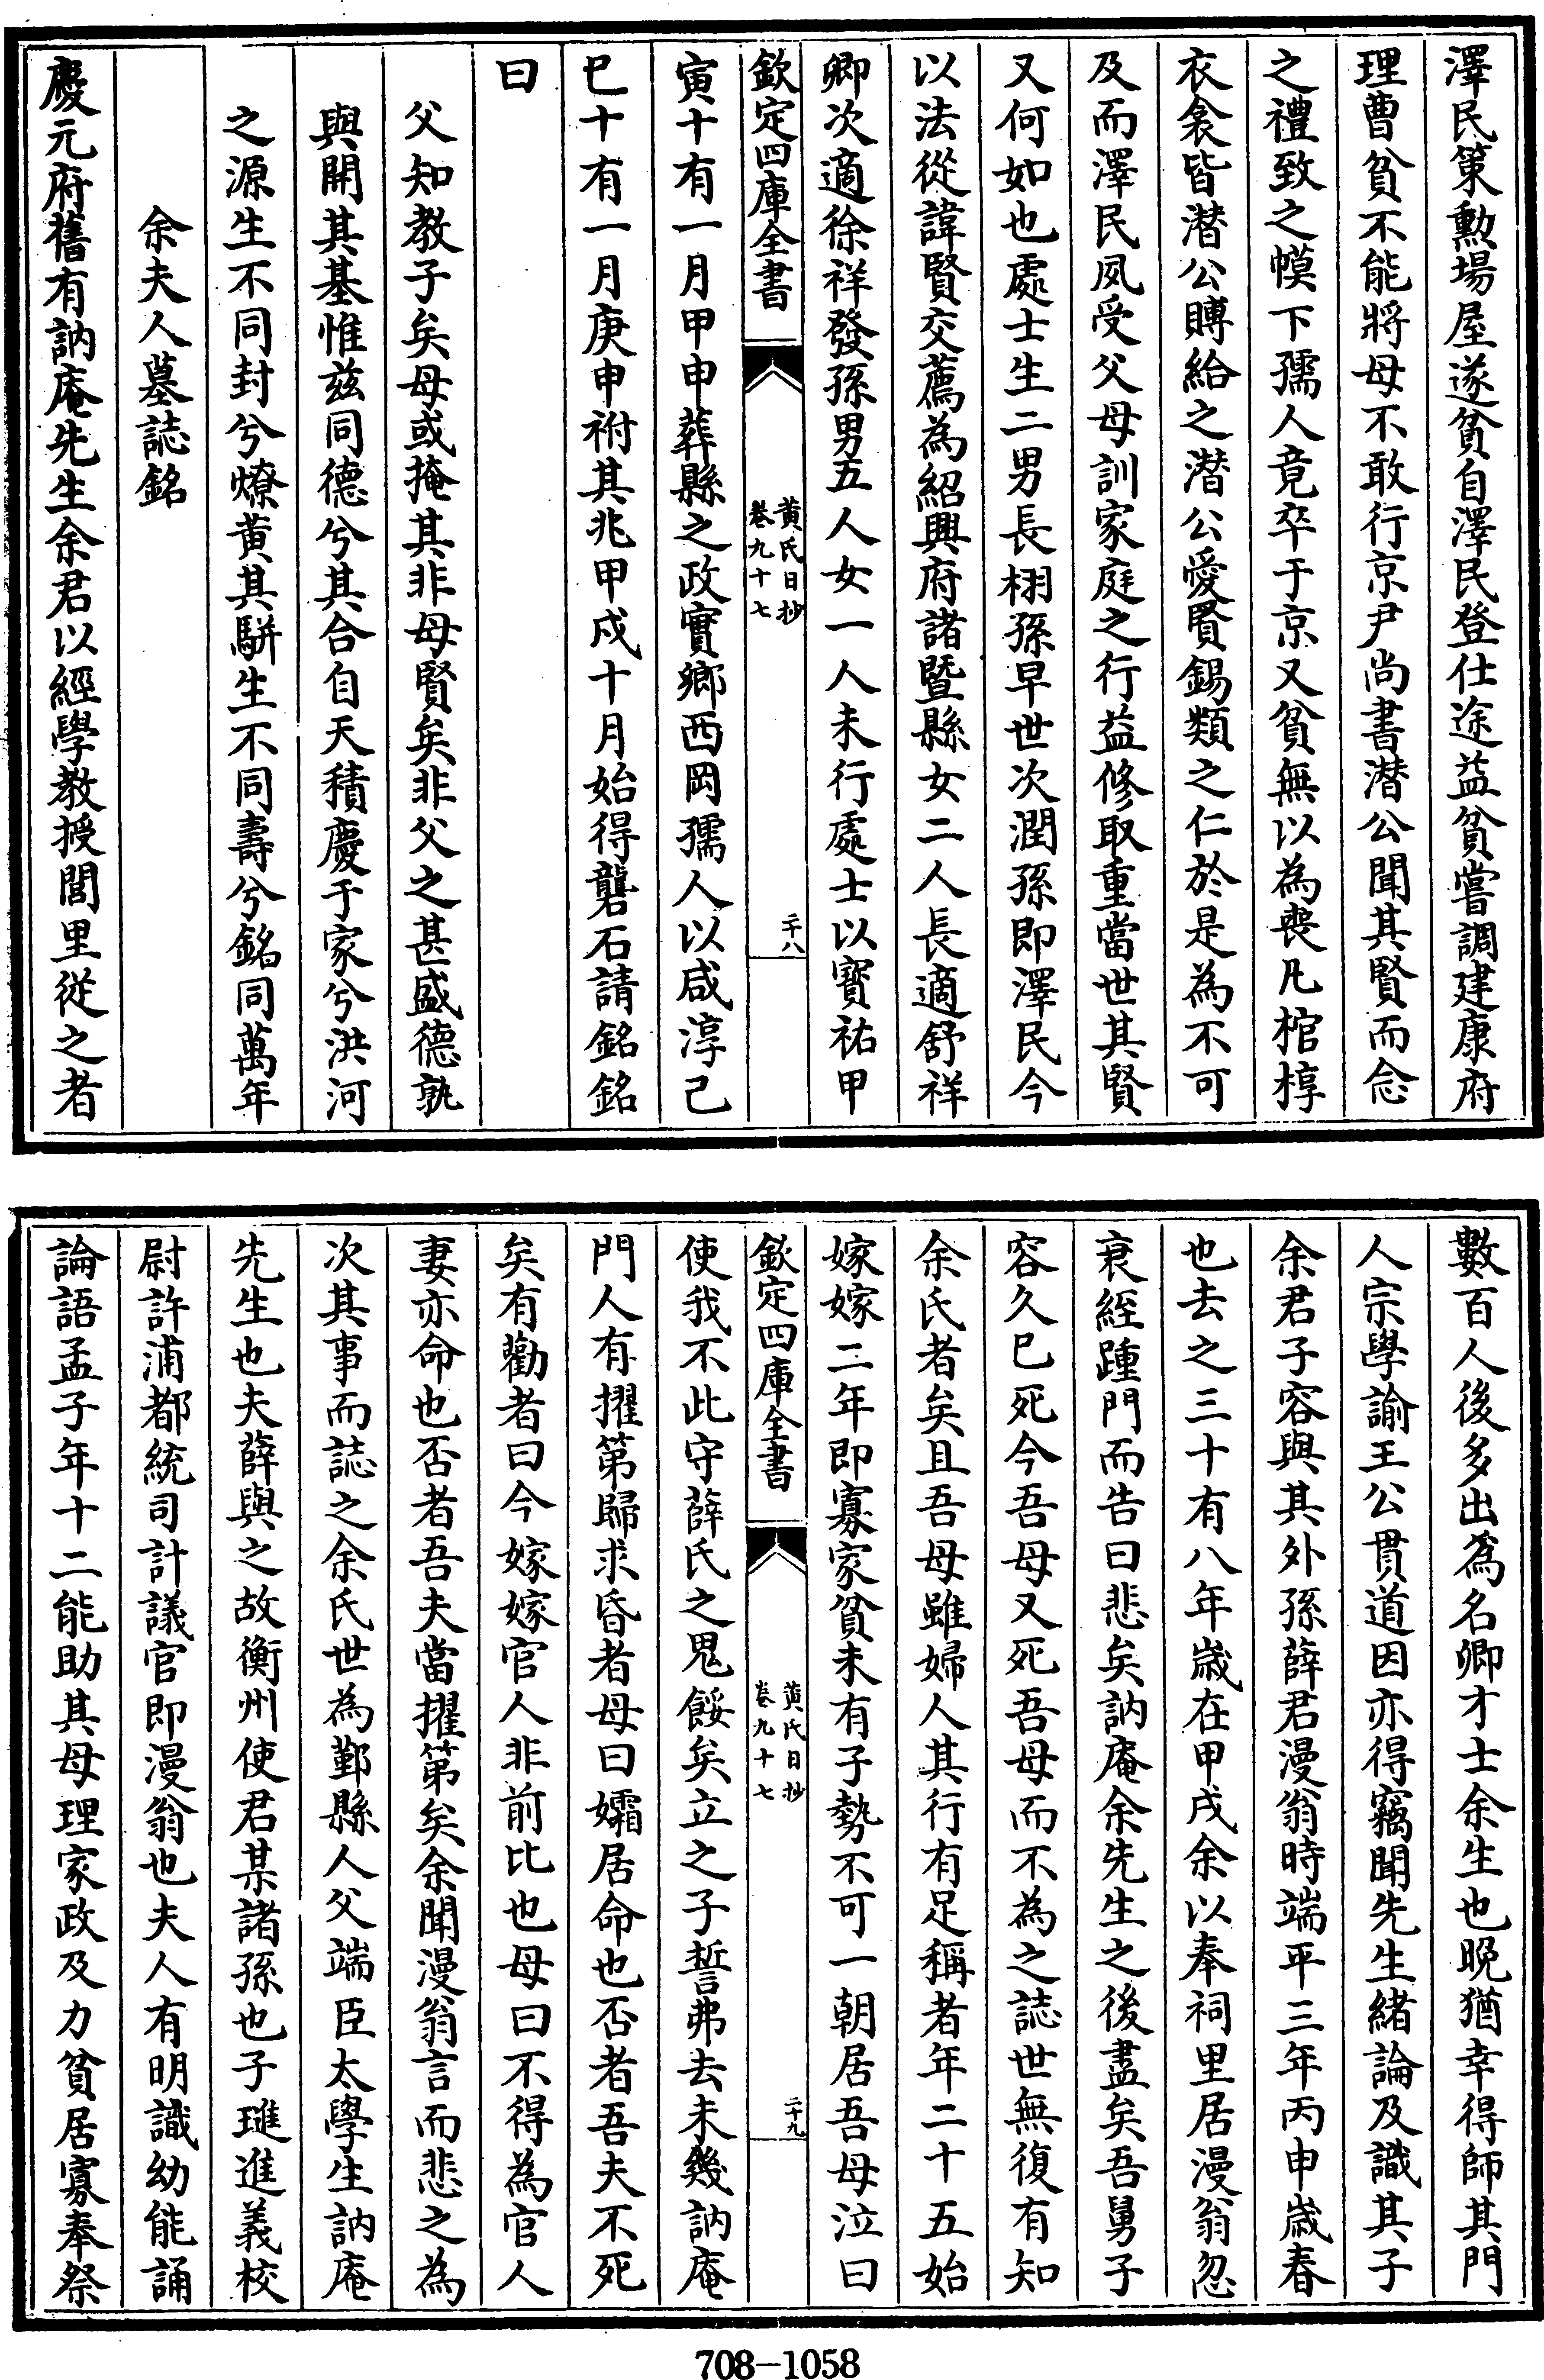 澤民策勲場屋遂貧自澤民登仕途益貧嘗調建康府
理曹貧不能將母不敢行京尹尚書潜公聞其賢而念
之禮致之幙下孺人竟卒于京又貧無以為喪凡棺椁
衣衾皆潜公賻給之潜公愛賢錫類之仁於是為不可
及而澤民夙受父母訓家庭之行益修取重當世其賢
又何如也處士生二男長栩孫早世次潤孫即澤民今
以法從諱賢交薦為紹興府諸暨縣女二人長適舒祥
卿次適徐祥發孫男五人女一人未行處士以寳祐甲
欽定四庫全書
黄氏日抄
卷九十七
二十八
寅十有一月甲申葬縣之政實鄉西岡孺人以咸淳己
巳十有一月庚申祔其兆甲戌十月始得礱石請銘銘
曰
父知教子矣母或掩其非母賢矣非父之甚盛德孰
與開其基惟兹同德兮其合自天積慶于家兮洪河
之源生不同封兮燎黄其駢生不同壽兮銘同萬年
余夫人墓誌銘
慶元府舊有訥庵先生余君以經學教授閭里從之者
數百人後多出為名卿才士余生也晚猶幸得師其門
人宗學諭王公貫道因亦得竊聞先生緒論及識其子
余君子容與其外孫薛君漫翁時端平三年丙申歲春
也去之三十有八年歲在甲戌余以奉祠里居漫翁忽
衰絰踵門而告曰悲矣訥庵余先生之後盡矣吾舅子
容久已死今吾母又死吾母而不為之誌世無復有知
余氏者矣且吾母雖婦人其行有足稱者年二十五始
嫁嫁二年即寡家貧未有子勢不可一朝居吾母泣曰
欽定四庫全書
黄氏日抄
卷九十七
二十九
使我不此守薛氏之鬼餒矣立之子誓弗去未幾訥庵
門人有擢第歸求昏者母曰孀居命也否者吾夫不死
矣有勸者曰今嫁嫁官人非前比也母曰不得為官人
妻亦命也否者吾夫當擢第矣余聞漫翁言而悲之為
次其事而誌之余氏世為鄞縣人父端臣太學生訥庵
先生也夫薛與之故衡州使君某諸孫也子璡進義校
尉許浦都統司計議官即漫翁也夫人有明識幼能誦
論語孟子年十二能助其母理家政及力貧居寡奉祭
708-1058